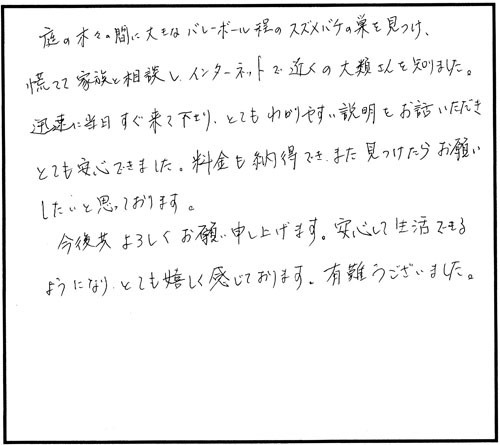 庭の木々の間に大きなバレーボール程のスズメバチの巣を見つけ、
慌てて家族と相談し、インターネットで近くの大類さんを知りました。
迅速に当日すぐ来て下さり、とてもわかりやすい説明をお話いただき
とても安心できました。料金も納得でき、また見つけたらお願い
したいと思っております。
今後共よろしくお願い申し上げます。安心して生活できる
ようになり、とても嬉しく感じております。有難うございました。